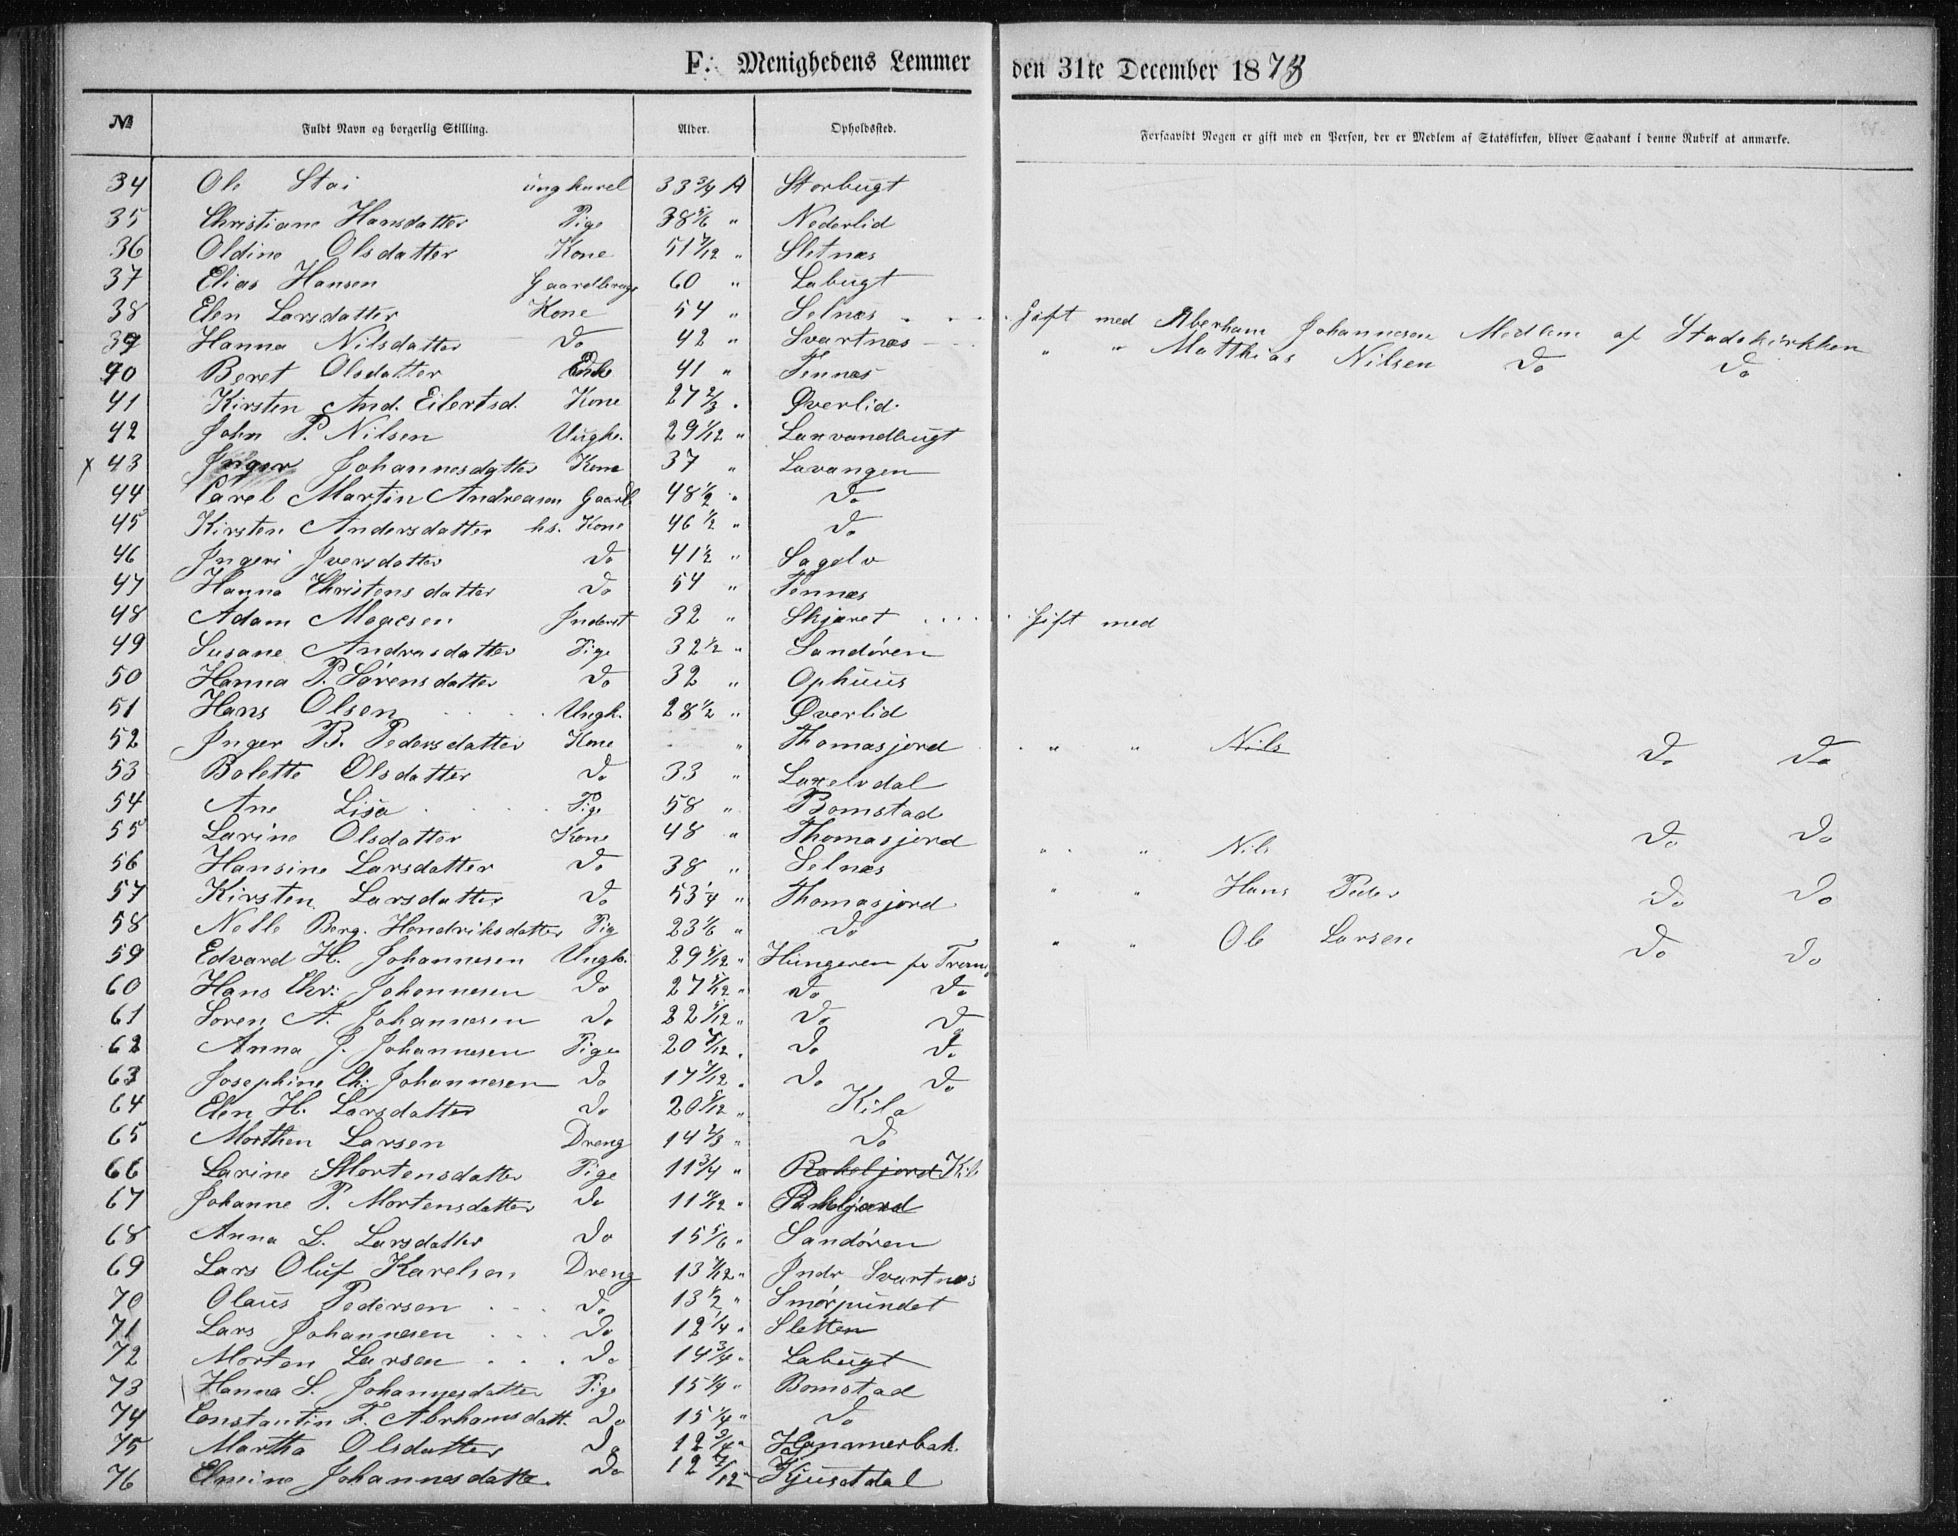 F. Menighedens Lemmer den 31te December 1873
№ Fuldt Navn og borgerlig Stilling. Alder. Opholdssted. Forsaavidt Nogen er gift med en Person, der er Medlem af Statskirken, bliver Saadant i denne Rubrik at anmærke.
34 Ole Stoi ungkarel 33 3/4 A Storbugt
35 Christiane Hansdatter Pige 38 5/6 " Nederlid
36 Oldine Olsdatter Kone 51 7/12 " Sletnæs
37 Elias Hansen Gaardbruger 60 " Labugt
38 Elen Larsdatter Kone 54 " Selnæs . . . . Gift med Aberham Johannesen Medlem af Stadskirkken
39 Hanna Nilsdatter Do 42 " Svartnæs - - . " " Matthias Nilsen Do Do
40 Beret Olsdatter Enke 41 " Tennæs
41 Kirsten And. Eilertsd. Kone 27 2/3 " Øverlid.
42 John P. Nilsen Ungk. 29 1/12 " Laxvandbugt
x 43 Inger Johannesdatter Kone 37 " Lavangen
44 Carel Martin Andreasen Gaardb 48 1/2 " Do
45 Kirsten Andersdatter hs. Kone 46 1/2 " Do
46 Ingeri Iversdatter Do 41 1/2 " Sagelv
47 Hanna Christensdatter Do 54 " Tennæs
48 Adam Moacsen Inderst 32 " Skjæret . . . . . Gift med
49 Susane Andrasdatter Pige 32 1/2 " Sandøren
50 Hanna P. Sørensdatter Do 32 " Ophuus
51 Hans Olsen . . . . Ungk. 28 1/2 " Øverlid
52 Inger B. Pedersdatter Kone " Thomasjord . " " Nils Do Do
53 Bolette Olsdatter Do 33 " Laxelvdal
54 Ane Lisa . . . . Pige 58 " Bomstad
55 Larine Olsdatter Kone 48 " Thomasjord " " Nils Do Do
56 Hansine Larsdatter Do 38 " Selnæs " " Hans Peder Do Do
57 Kirsten Larsdatter Do 53 1/4 " Thomasjord " " Ole Larsen Do Do
58 Nelle Berg. Hendriksdatter Pig 23 1/6 " Do
59 Edvard H. Johannesen Ungk. 29 5/12 " Hungeren pr Troms
60 Hans Chr: Johannesen Do 27 5/12 " Do Do
61 Søren A. Johannesen Do 22 5/12 " Do Do
62 Anna J. Johannesen Pige 20 5/12 " Do Do
63 Josephine Ch: Johannesen Do 17 7/12 " Do Do
64 Elen H. Larsdatter Do 20 5/12 " Kila
65 Morthen Larsen Dreng 14 2/3 " Do
66 Larine Mortensdatter Pige 11 3/4 " Rakeljord Kila
67 Johanne P. Mortensdatter Do 11 11/12 " Rakeljord
68 Anna L. Larsdatter Do 15 5/6 " Sandøren
69 Lars Oluf Karelsen Dreng 13 7/12 " Indr Svartnæs
70 Olaus Pedersen . . . Do 13 1/2 " Smørpundet
71 Lars Johannesen . . . Do 12 1/4 " Sletten
72 Morten Larsen . . . Do 14 3/4 " Labugt
73 Hanna S. Johannesdatter Pige 15 1/4 " Bomstad
74 Constantin F. Abrhamsdatt. Do 15 1/4 " Do
75 Martha Olsdatter Do 12 3/4 " Hammerbak.
76 Elneine Johannesdatte. Do 12 7/12 Kjusetdal